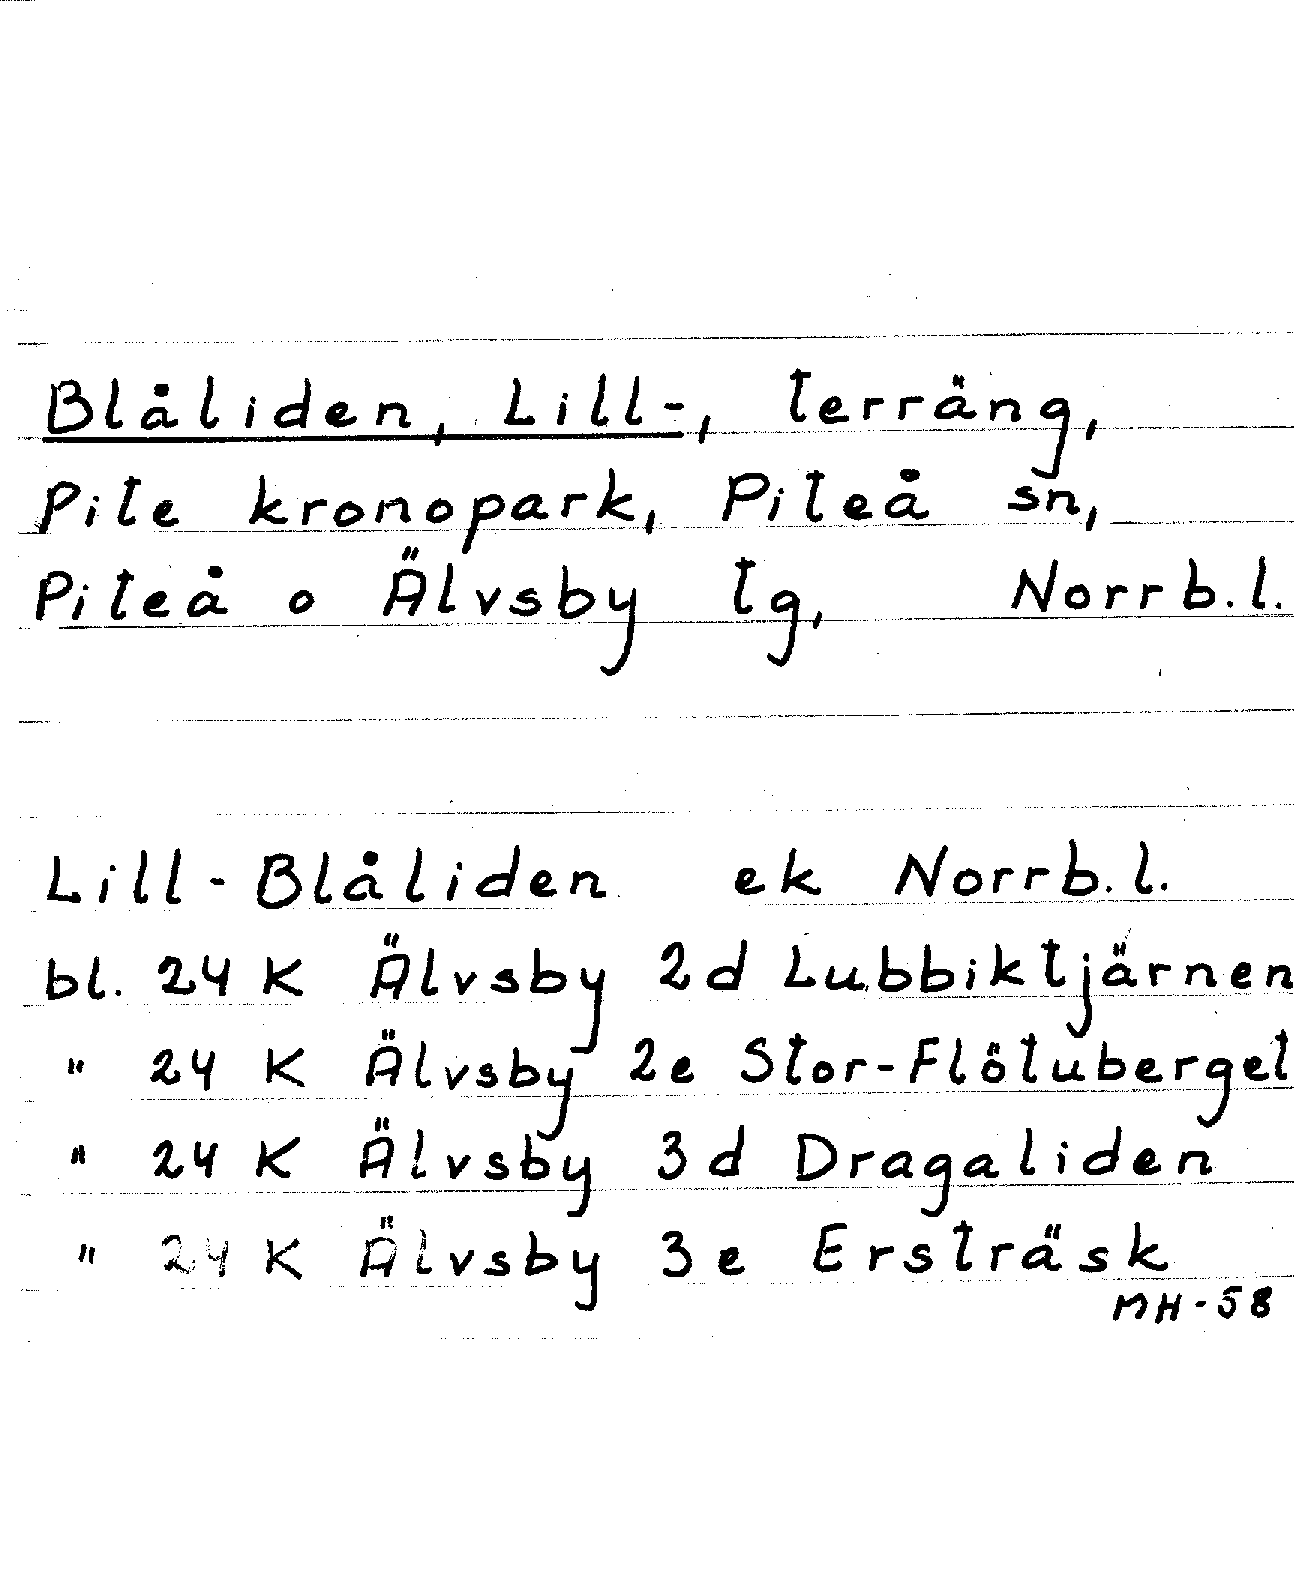 Blåliden, Lill-, terräng,
Pite kronopark, Piteå sn,
Piteå o Älvsby tg, Norrb.l.
Lill-Blåliden ek Norrb.l.
bl. 24 K Älvsby 2d Lubbiktjärnen
" 24 K Älvsby 2e Stor-Flötuberget
" 24 K Älvsby 3d Dragaliden
" 24 K Älvsby 3e Ersträsk
MH-58